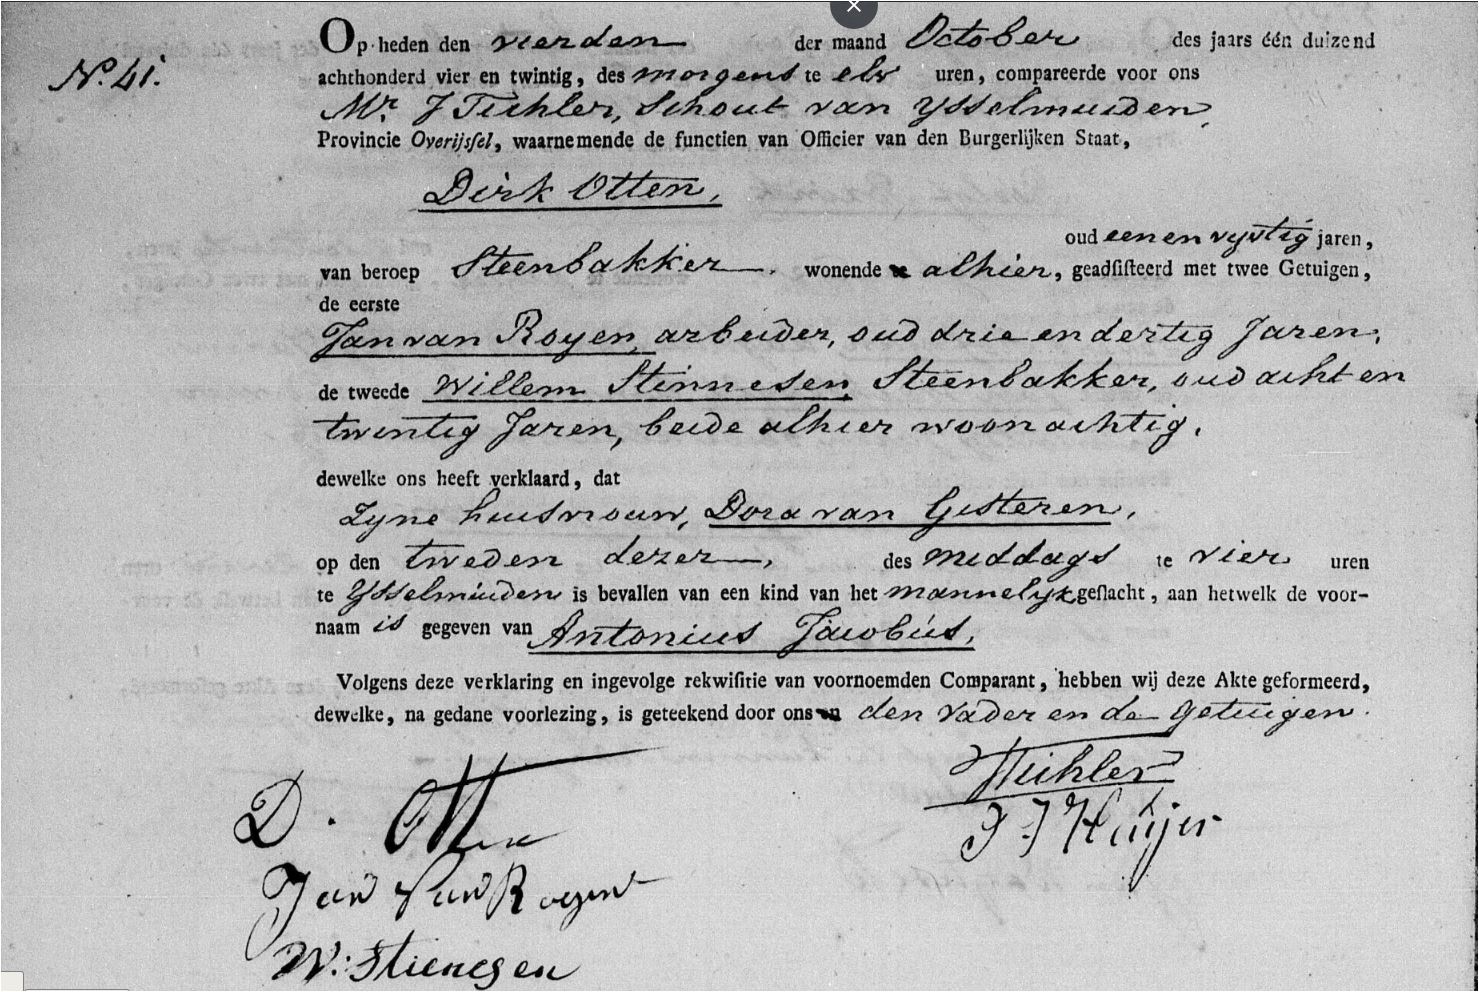 Op heden den vierden der maand October des jaars één duizend
No. 41.
achthonderd vier en twintig, des morgens te elv uren, compareerde voor ons
Mr. J Tichler, Schout van Ysselmuiden,
Provincie Overijssel, waarnemende de functien van Officier van den Burgerlijken Staat,
Dirk Otten,
oud een en vyvtig jaren,
van beroep Steenbakker. wonende alhier, geadsisteerd met twee Getuigen,
de eerste
Jan van Royen, arbeider, oud drie en dertig Jaren,
de tweede Willem Stinnesen, Steenbakker, oud acht en
twintig Jaren, beide alhier woonachtig.
dewelke ons heeft verklaard, dat
Zyne huisvrouw, Dora van Gesteren,
op den tweden dezer, des middags te vier uren
te Ysselmuiden is bevallen van een kind van het mannelyk geslacht, aan hetwelk de voor-
naam is gegeven van Antonius Jacobus,
Volgens deze verklaring en ingevolge rekwisitie van voornoemden Comparant, hebben wij deze Akte geformeerd,
dewelke, na gedane voorlezing, is geteekend door ons den vader en de getuigen.
JTichler
D. Otten
Jan Van Rogen
W: Stienesen